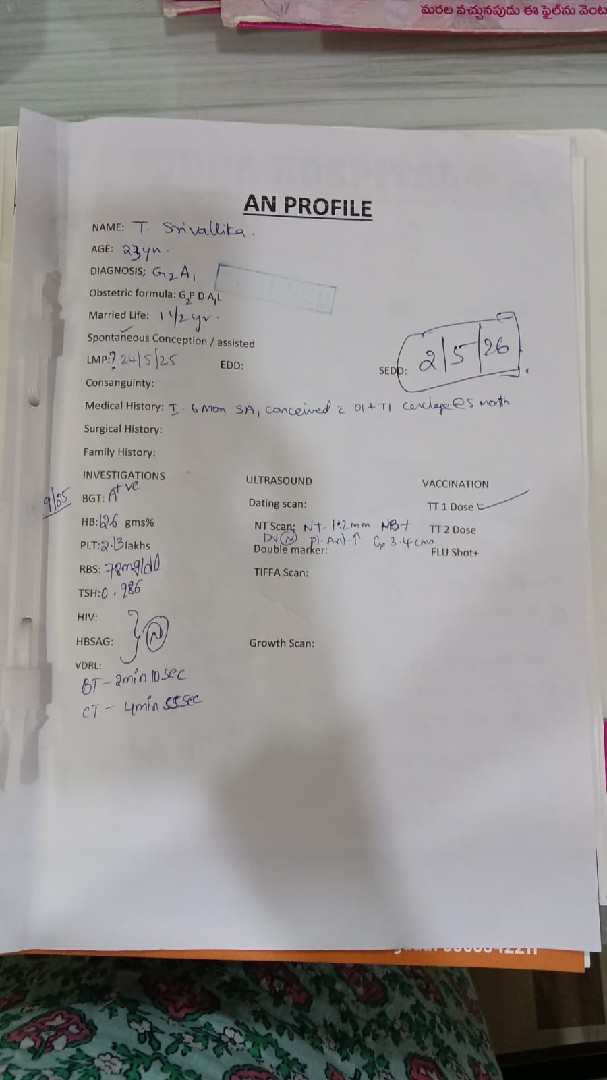 మరల వచ్చునపుడు ఈ ఫైల్‌ను వెంట
AN PROFILE
NAME: T. Srivallika.
AGE: 23yr.
DIAGNOSIS: G2A1
Obstetric formula: G2P D A1L
Married Life: 1 1/2 yr.
Spontaneous Conception / assisted
LMP:? 24/5/25 EDD: SEDD: 2/5/26
Consanguinty:
Medical History: I. 6 Mon SA, conceived c OI+TI @5 month
Surgical History:
Family History:
INVESTIGATIONS ULTRASOUND VACCINATION
9/25
BGT: A+ve Dating scan: TT 1 Dose
HB: 12.6 gms% NT Scan: NT- 1.2mm NB+ TT 2 Dose
DV (N) Pl-Ant-↑ Cx 3.4cm
PLT: 2.13 lakhs Double marker: FLU Shot+
RBS: 78mg/dl TIFFA Scan:
TSH: 0.986
HIV:
HBSAG: (N) Growth Scan:
VDRL:
BT- 2min 10sec
CT- 4min 55sec